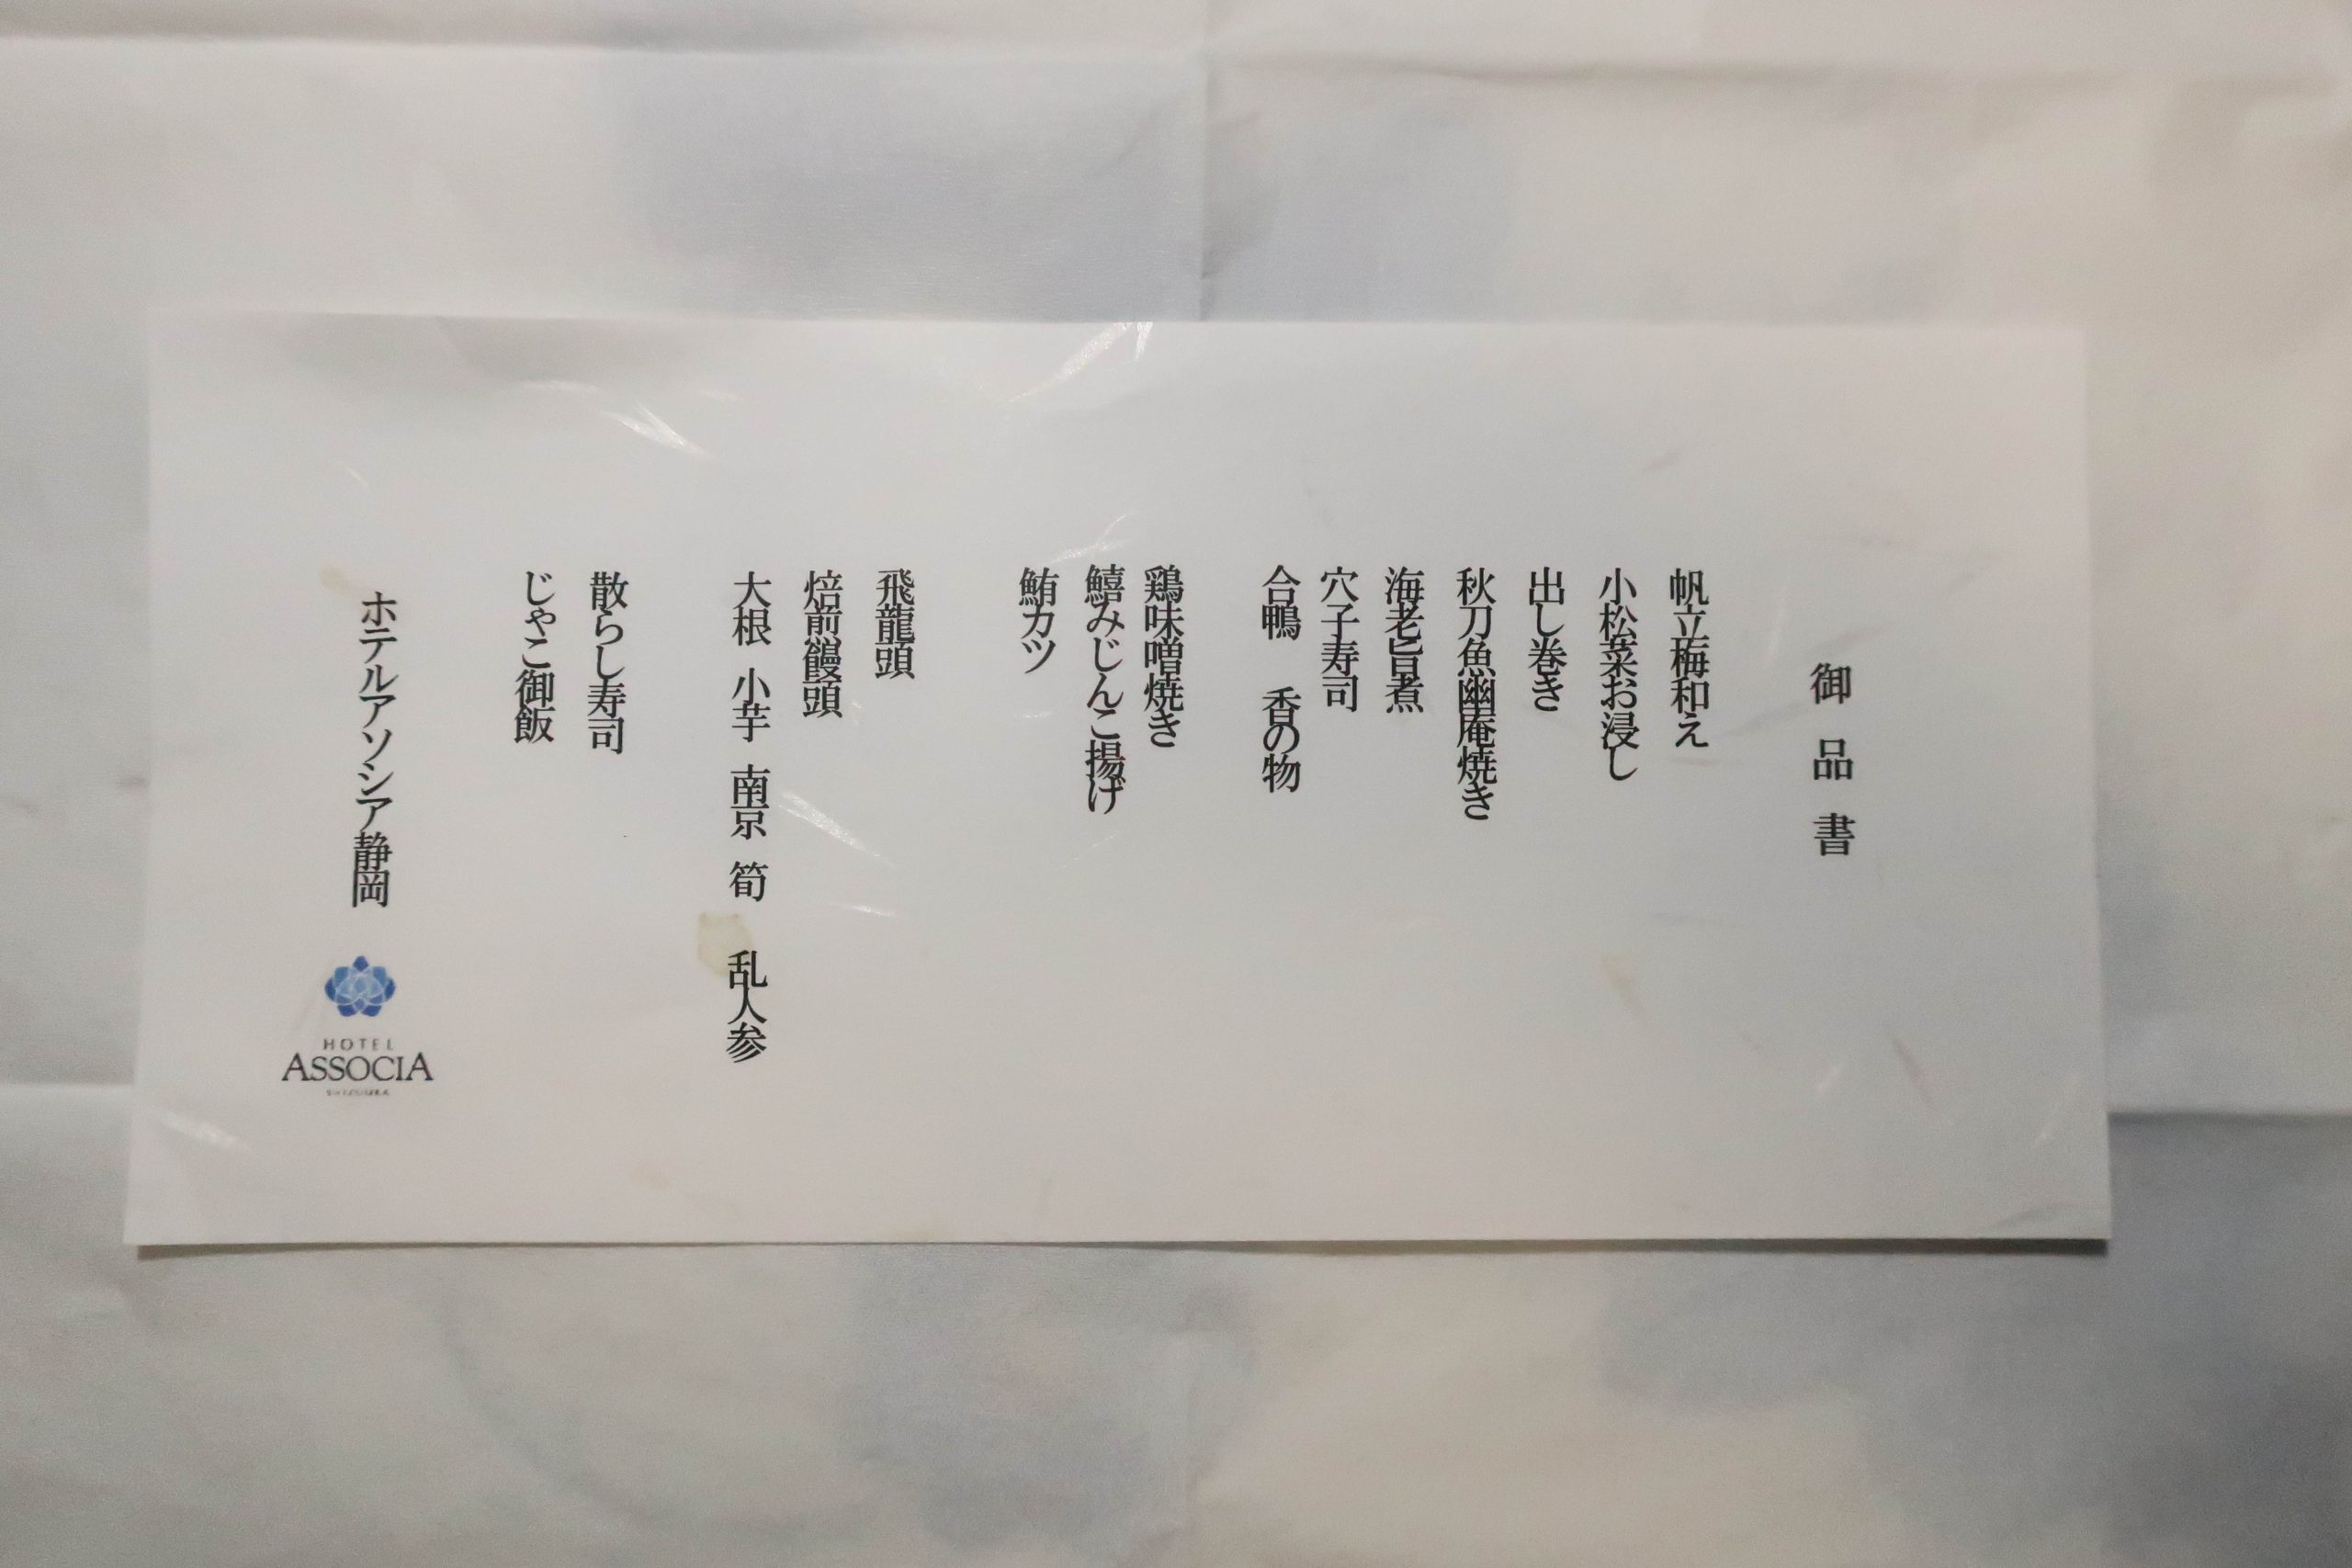 御品書
帆立梅和え
小松菜お浸し
出し巻き
秋刀魚幽庵焼き
海老旨煮
穴子寿司
合鴨 香の物
鶏味噌焼き
鱚みじんこ揚げ
鮪カツ
飛龍頭
焙煎饅頭
大根 小芋 南京 筍 乱人参
散らし寿司
じゃこ御飯
ホテルアソシア静岡
HOTEL
ASSOCIA
SHIZUOKA